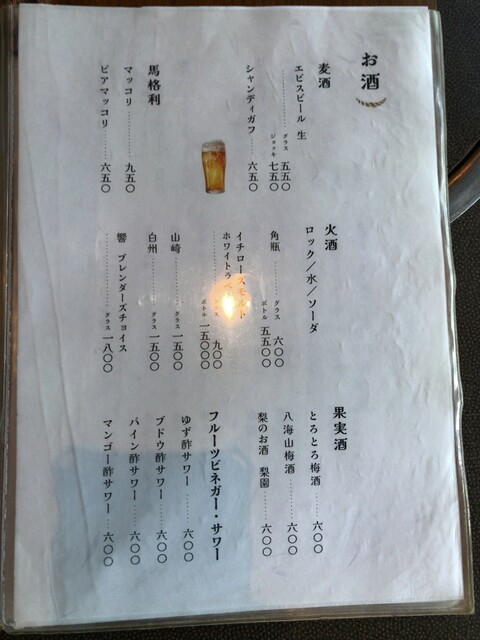 お酒
麦酒
エビスビール 生
グラス 五五〇
ジョッキ 七五〇
シャンディガフ 六五〇
馬格利
マッコリ 九五〇
ビアマッコリ 六五〇
火酒
ロック／水／ソーダ
角瓶 グラス 六〇〇
ボトル 五五〇〇
イチローズモルト
ホワイトラベル
グラス 九〇〇
ボトル 一五〇〇〇
山崎 グラス 一五〇〇
白州 グラス 一五〇〇
響 ブレンダーズチョイス
グラス 一八〇〇
果実酒
とろとろ梅酒 六〇〇
八海山梅酒 六〇〇
梨のお酒 梨園 六〇〇
フルーツビネガー・サワー
ゆず酢サワー 六〇〇
ブドウ酢サワー 六〇〇
パイン酢サワー 六〇〇
マンゴー酢サワー 六〇〇